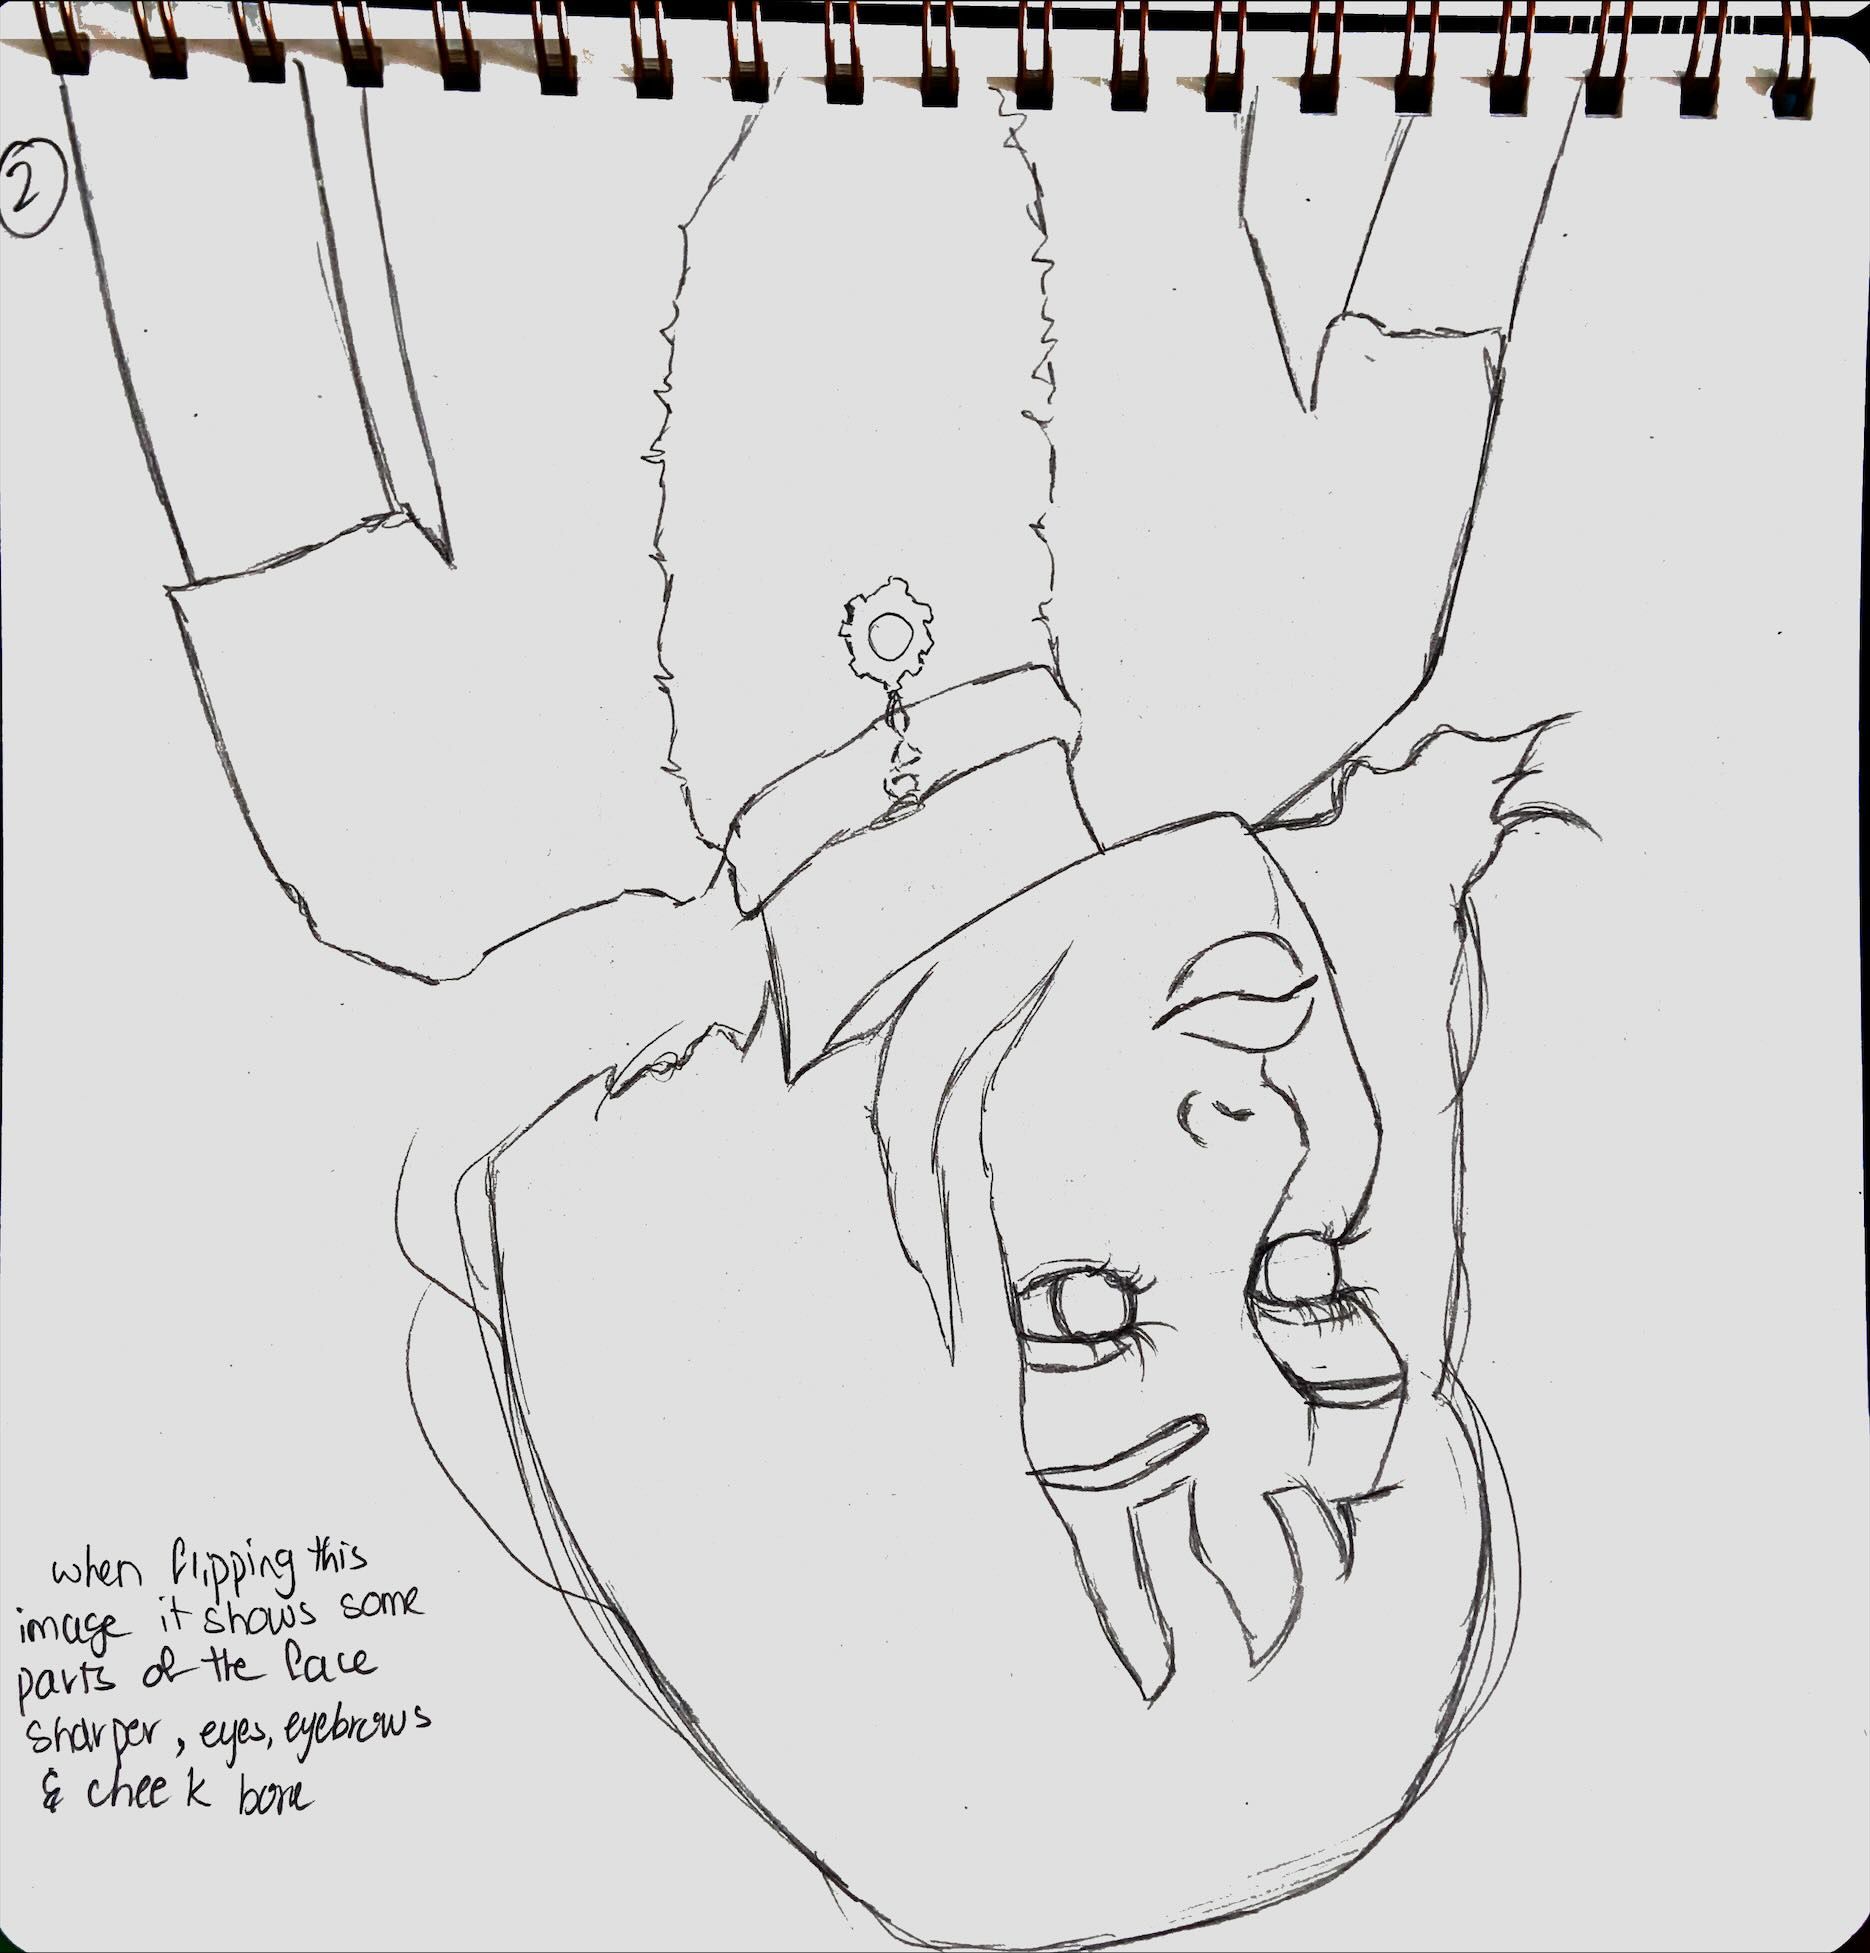 2
when flipping this
image it shows some
parts of the face
sharper, eyes, eyebrows
& cheek bone